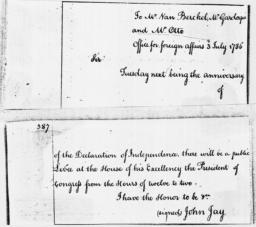 To Mr Van Berckel, Mr Gardoqui
and Mr Otto
Office for foreign affairs 3d July 1786
Sir
Tuesday next being the anniversary
of
387
of the Declaration of Independence, there will be a public
Levee at the House of his Excellency the President of
Congress from the Hours of twelve to two.
I have the Honor to be &c.
(signed) John Jay